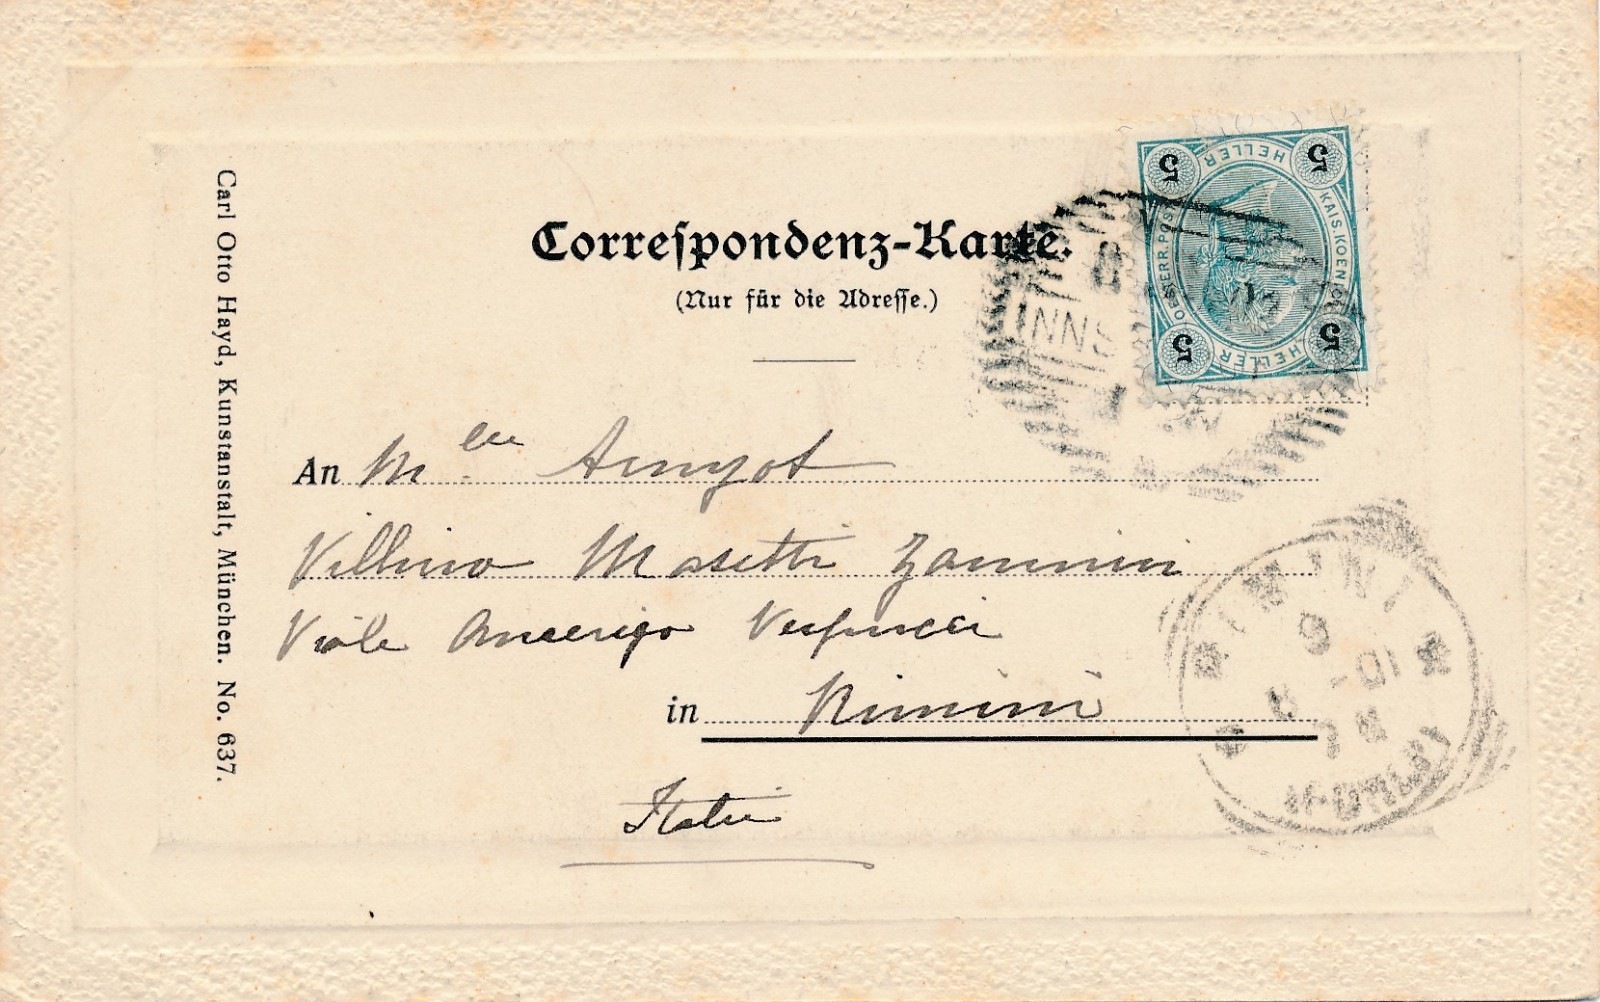 Correspondenz-Karte.
(Nur für die Adresse.)
Carl Otto Hayd, Kunstanstalt, München. No. 637.
5 HELLER 5
KAIS.KOENIGL
OESTERR.POST
5 HELLER 5
INNS
An Mlle Amyot
Villino Masetti Zannini
Viale Amerigo Vespucci
in Rimini
Italie
RIMINI
9
8 - 01
(FORLI)